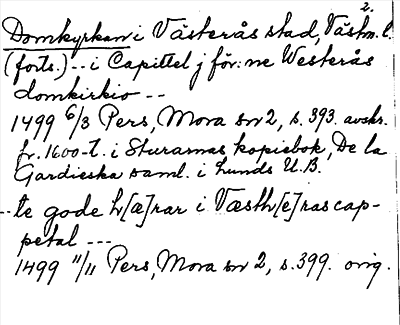 2.
Domkyrkan i Västerås stad, Västm. l.
(forts.) -- i Capittel j för:ne Westerås
domkirkio --
1499 6/3 Pers, Mora sn 2, s. 393. avskr.
fr. 1600-t. i Sturarnas kopiebok, De la
Gardieska saml. i Lunds U.B.
-- te gode h[æ]rar i Væsth[e]ras cap-
petal ---
1499 11/11 Pers, Mora sn 2, s. 399. orig.